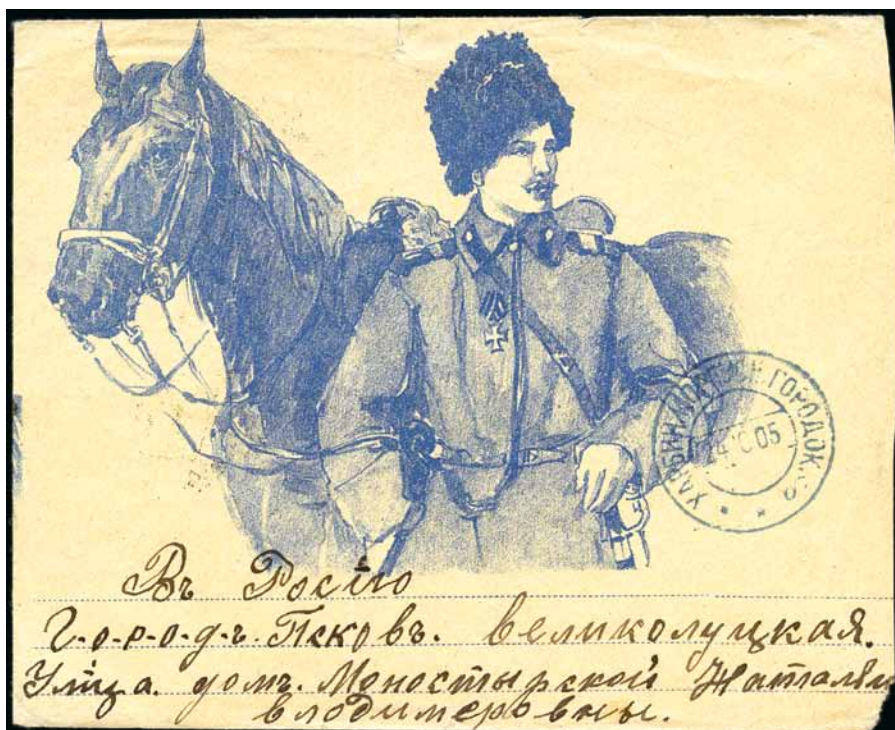 ХАРБИН ГОРОДОК.
05
Въ Росiю
Г-о-р-о-д-ъ. Псковъ. великолуцкая.
Улица. домъ. Моностырской Наталiи
влодимеровны.